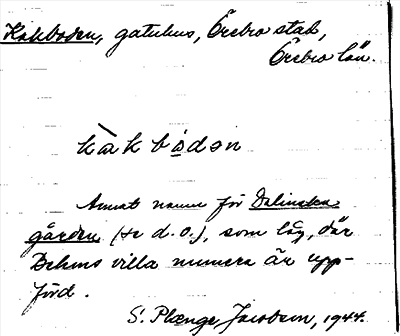 Kakboden, gatuhus, Örebro stad,
Örebro län.
kàkbo̲dən
Annat namn för Dalinska
gården (se d.o.), som låg, där
Behrns villa numera är upp-
förd.
S. Plænge Jacobson, 1944.